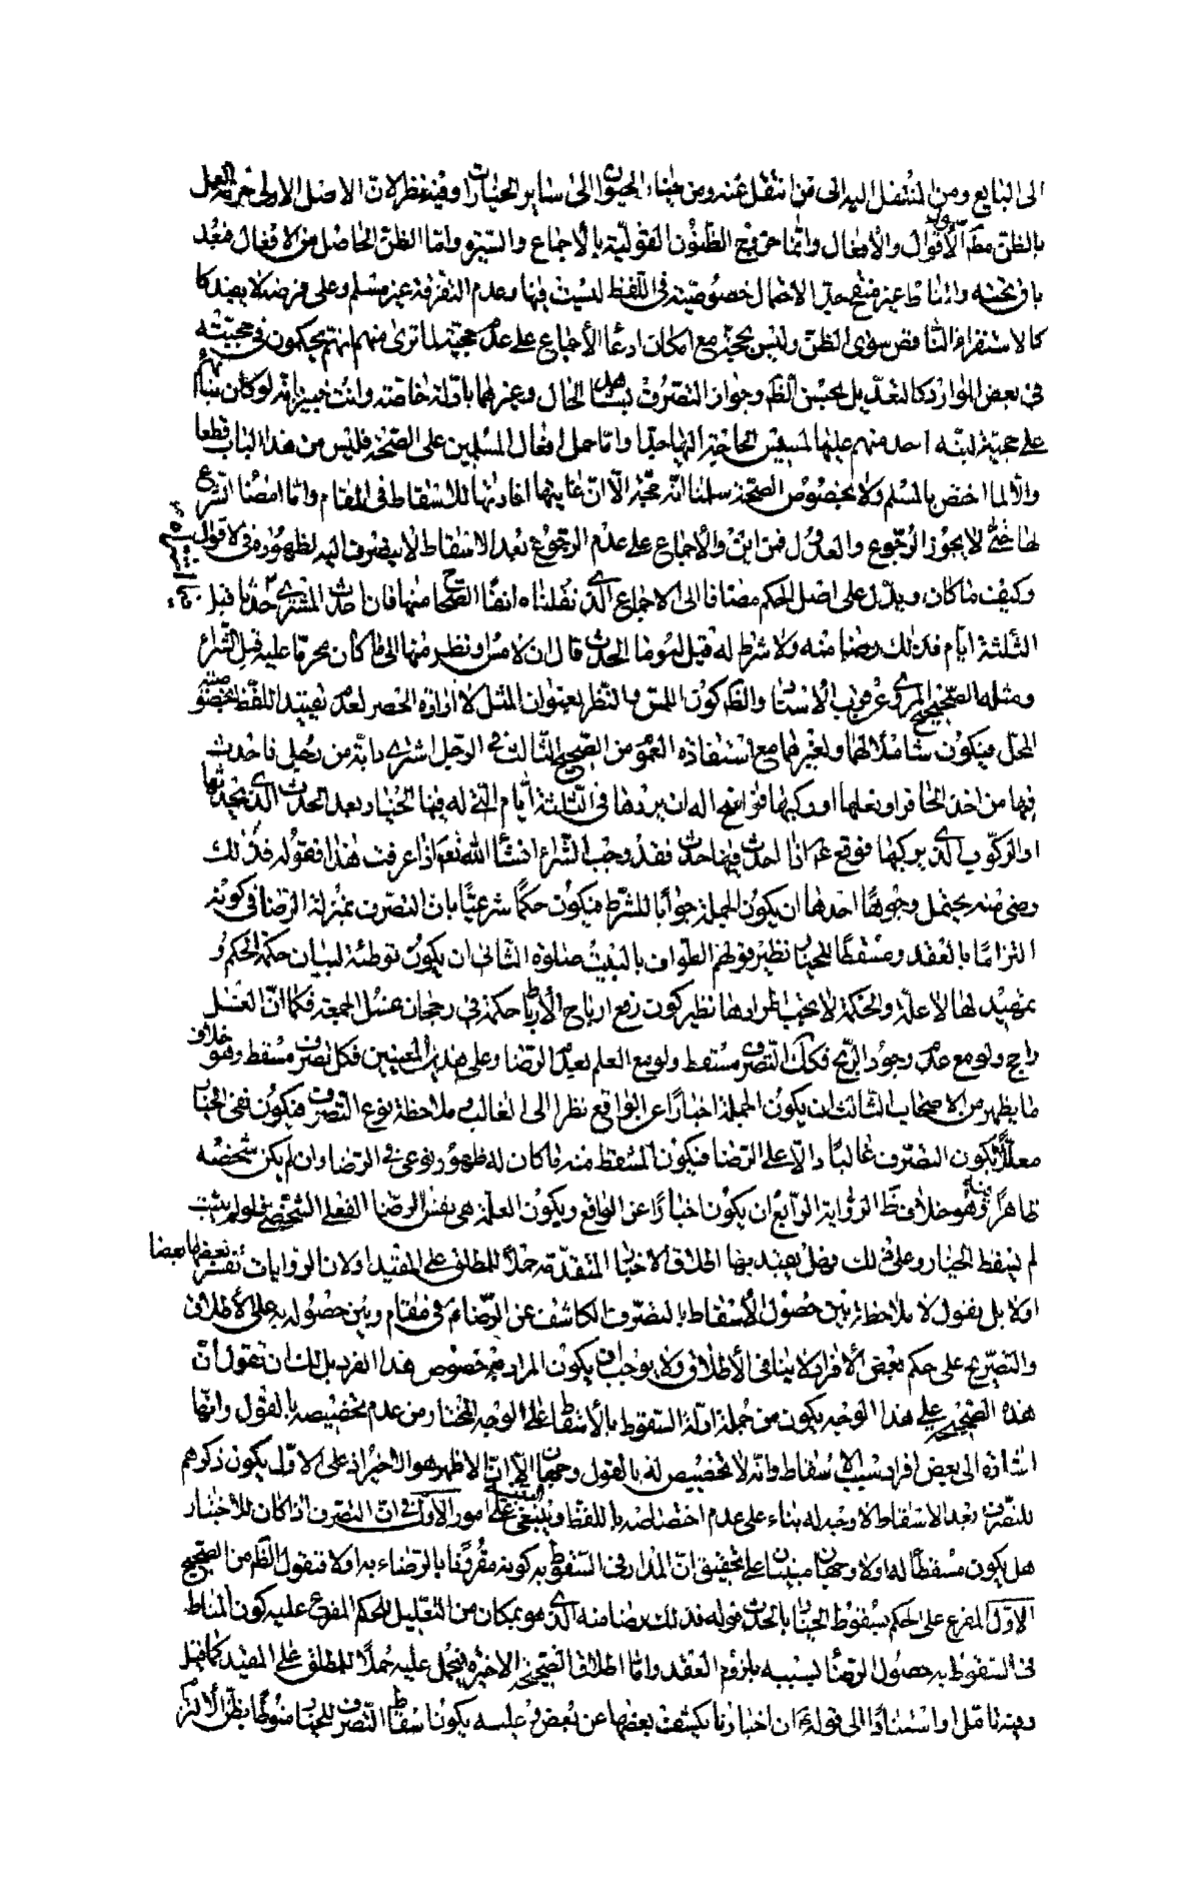 الى البايع ومن المنتقل اليه الى من انتقل عنه ومن خيار الحيوان الى ساير الخيارات وفيه نظر لان الاصل الاولى حرمة العمل
بالظن مط الاقوال والافعال وانما خروج الظنون القولية بالاجماع والسيرة واما الظن الحاصل من الافعال فبعد
باق تحته والمناط غير منقح جدا لاحتمال خصوصية فى اللفظ ليست فيها وعدم التفرقة غير مسلم وعلى فرضه لا يفيد كا
كالاستقراء الناقص سوى الظن وليس بحجة مع امكان ادعاء الاجماع على عدم حجيته لما ترى منهم انهم يحكمون فى حجيته
فى بعض الموارد كالتعديل بحسن الظ وجواز التصرف بشاهد الحال وغيرهما بادلة خاصة وانت خبير بانه لو كان بناؤهم
على حجيته لنبه احد منهم عليها لمسيس الحاجة اليها جدا واما حمل افعال المسلمين على الصحة فليس من هذا الباب قطعا
والا لما اختص بالمسلم ولا بخصوص الصحة سلمنا انه حجة الا ان غايتها افادتها للاسقاط فى المقام واما امضاء الشرع
لها حتى لا يجوز الرجوع والعدول فمن اين والاجماع على عدم الرجوع بعد الاسقاط لا ينصرف اليه لظهوره فى الاقوال
وكيف ما كان ويدل على اصل الحكم مضافا الى الاجماع الذى نقلناه ايضا الصحاح منها فان احدث المشترى حدثا قبل
الثلثة ايام فذلك رضا منه ولا شرط له قيل له وما الحدث قال ان لامس او نظر منها الى ما كان يحرم عليه قبل الشراء
ومثله الصحيح المروى عن قرب الاسناد والظ كون اللمس والنظر بعنوان المثل لا ارادة الحصر لعدم تقييد اللفظ بخصوصية
المحل فيكون شاملا لهما ولغيرهما مع استفادة العموم من الصحيح الثالث فى الرجل اشترى دابة من رجل فاحدث
فيها من اخذ الحافر او نعلها او ركبها فراسخ اله ان يردها فى الثلثة ايام التى له فيها الخيار بعد الحدث الذى يحدثها
او الركوب الذى يركبها فوقع ع اذا احدث فيها حدثا فقد وجب الشراء انشاء الله نعم اذا عرفت هذا فقوله فذلك
رضى منه يحتمل وجوها احدها ان يكون الجملة جوابا للشرط فيكون حكما شرعيا بان التصرف بمنزلة الرضا فى كونه
التزاما بالعقد ومسقطا للخيار نظير قولهم الطواف بالبيت صلوة الثانى ان يكون توطئة لبيان حكمة الحكم و
تمهيد لها لا علة والحكمة لا يجب اطرادها نظير كون رفع ارياح الآباط حكمة فى رجحان غسل الجمعة فكما ان الغسل
راجح ولو مع عدم وجود الريح فكك التصرف مسقط ولو مع العلم بعدم الرضا وعلى هذين المعنيين فكل تصرف مسقط وهو خلاف
ما يظهر من الاصحاب الثالث ان يكون الجملة اخبارا عن الواقع نظرا الى الغالب وملاحظة نوع التصرف فيكون نفى الخيار
معللا بكون التصرف غالبا دالا على الرضا فيكون المسقط منه ما كان له ظهور نوعى فى الرضا وان لم يكن شخصه
ظاهرا فيه وهو خلاف ظ الرواية الرابع ان يكون اخبارا عن الواقع ويكون العلة هى نفس الرضا الفعلى الشخصى فلو لم يثبت
لم يسقط الخيار وعلى ذلك وهل يقيد بها اطلاق الاخبار المتقدمة حملا للمطلق على المقيد او لان الروايات تفسر بعضها بعضا
اولا بل يقول لا ملاحظة بين حصول الاسقاط بالتصرف الكاشف عن الرضاء فى مقام وبين حصوله به على الاطلاق
والتصريح على حكم بعض الافراد لا ينافى الاطلاق ولا يوجب ان يكون المراد مع خصوص هذا الفرد بل لك ان تقول ان
هذه الصحيحة على هذا الوجه يكون من جملة ادلة السقوط بالاسقاط على الوجه المختار ومن عدم تخصيصه بالقول وانها
اشارة الى بعض افراد سبب الاسقاط وانه لا تخصيص له بالقول وجهان الا ان الاظهر هو الاخير اذ على الاول يكون ذكرهم
للتصرف بعد الاسقاط لا وجه له بناء على عدم اختصاصه باللفظ وينبغى التنبيه على امور الاول فى ان التصرف اذا كان للاختبار
هل يكون مسقطا له اولا وجهان مبنيان على تحقيق ان المدار فى السقوط به كونه مقرونا بالرضاء به اولا فنقول الظ من الصحيح
الاول المفرع على الحكم بسقوط الخيار بالحدث قوله فذلك رضا منه الذى هو بمكان من التعليل للحكم المفرع عليه كون المناط
فى السقوط به حصول الرضا بسببه بلزوم العقد واما اطلاق الصحيحة الاخيرة فيحمل عليه حملا للمطلق على المقيد كما قيل
وفيه تامل او استنادا الى قوله ع ان اخبارنا يكشف بعضها عن بعض وعليه يكون اسقاط التصرف للخيار منوطا بظن الالتزام